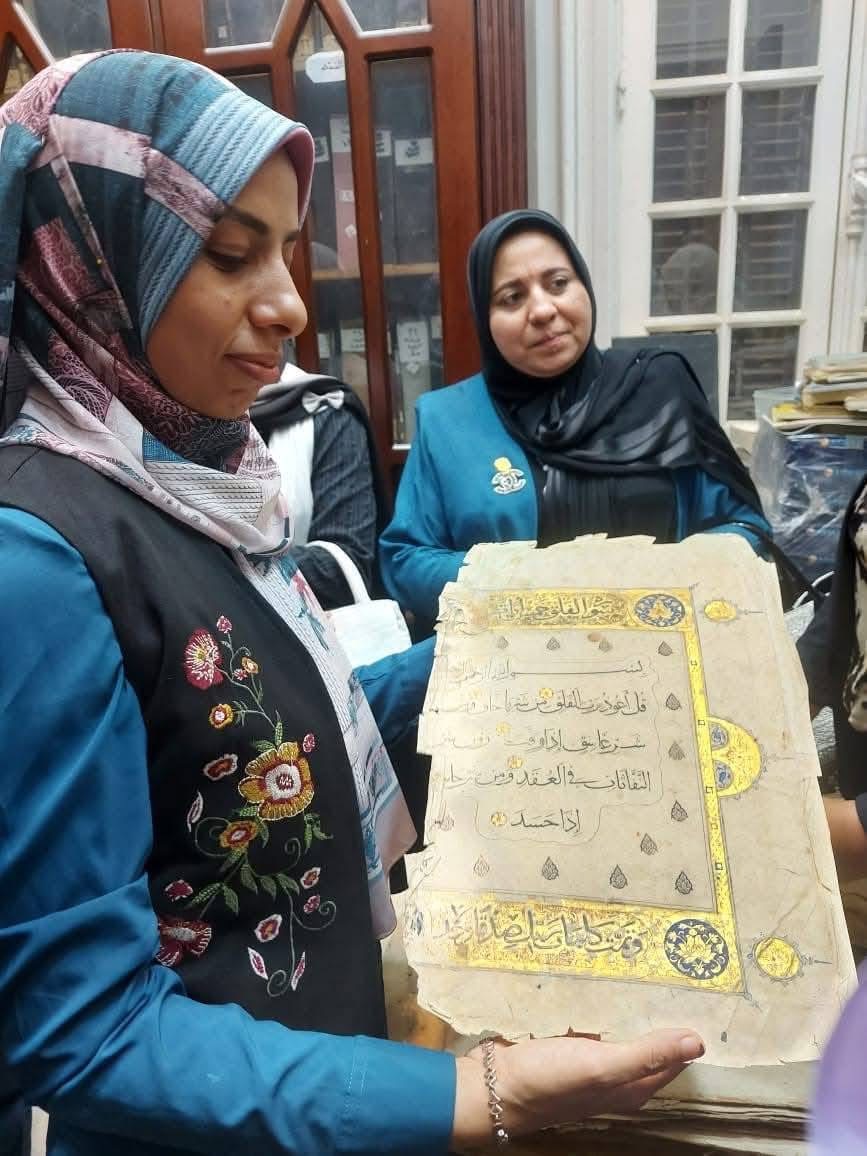 سورة الفلق خمس ايات
بسم الله الرحمن
قل أعوذ برب الفلق من شر ما خلق ومن
شر غاسق إذا وقب ومن شر
النفاثات في العقد ومن شر حاسد
إذا حسد
وتمت كلمات ربك صدقا